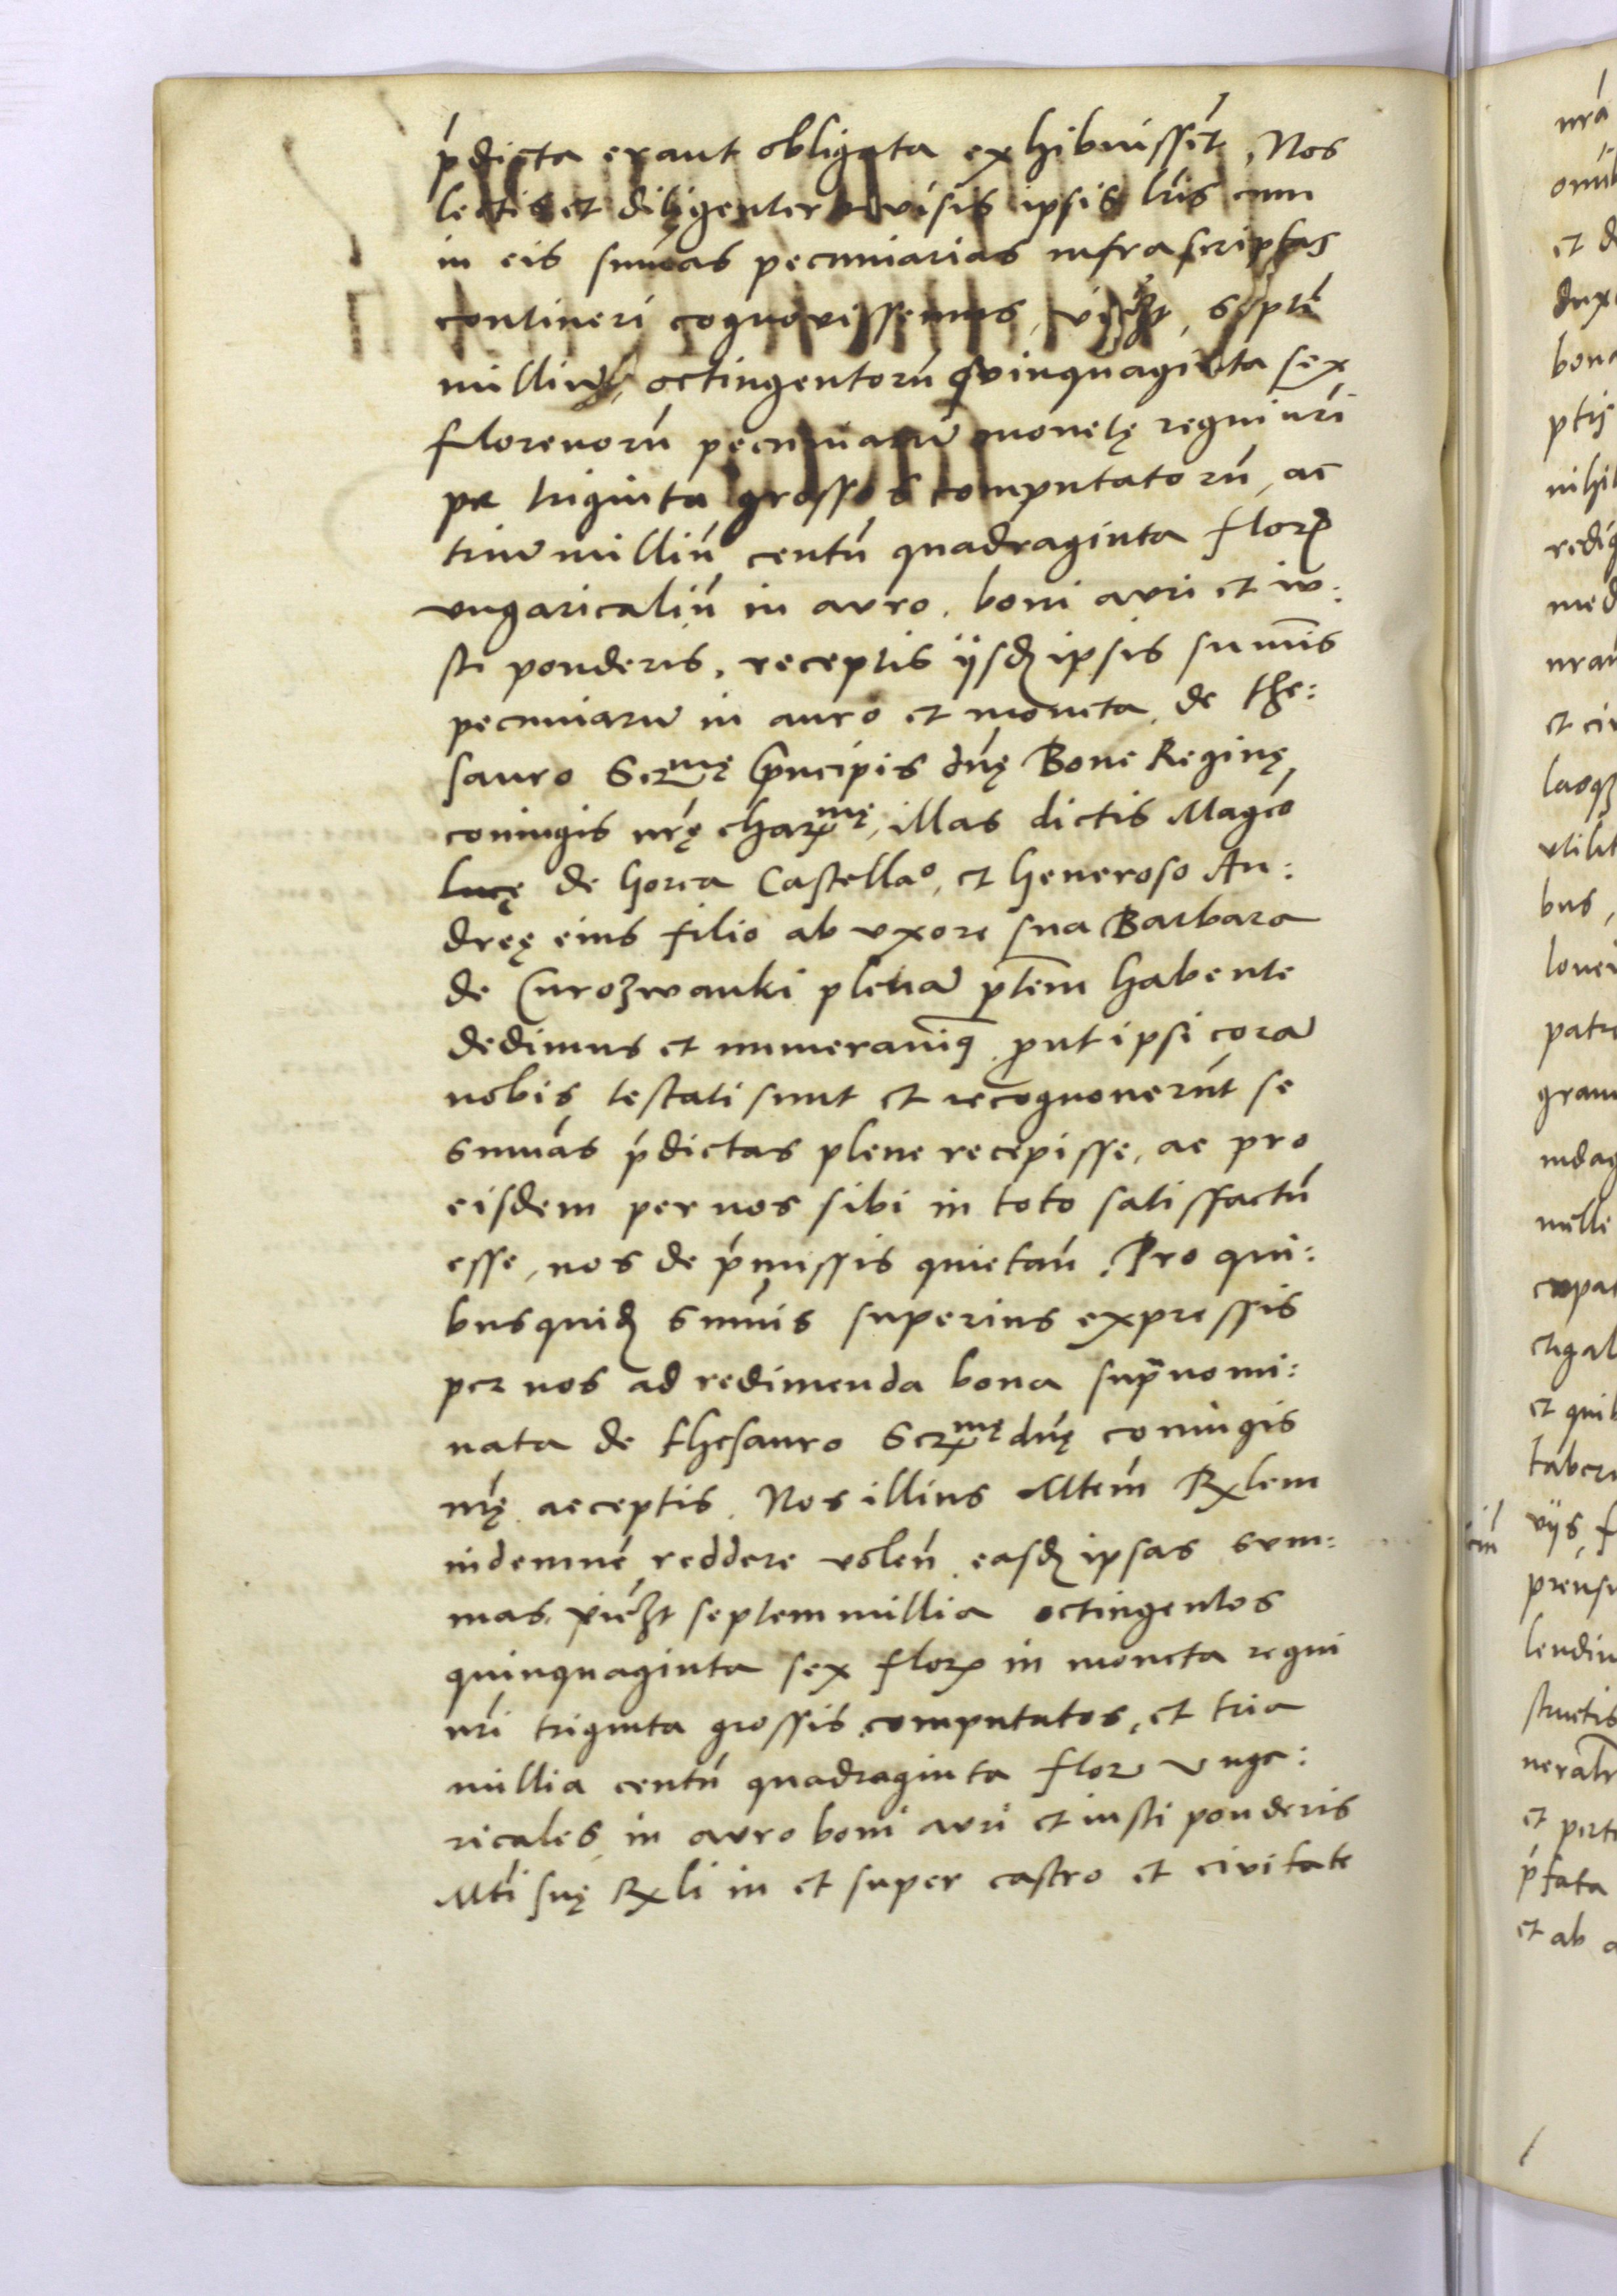 ṕdicta erant obligata exhibuissēt, Nos
lectis et diligenter visis ipsis lr̄is cum
in eis summas pecuniarias infrascriptas
contineri cognovissemus, vꝫt, septē
milliū, octingentorū quinquaginta sex
florenorū pecuniarū monetę regni nr̄i
per triginta grossos computatorū, ac
triū milliū centū quadraginta flor̄
vngaricaliū in avro, boni avri et iu:
sti ponderis, receptis ijsdꝫ ipsis sum̄is
pecuniarū in auro et moneta de the:
sauro Serᵐᵉ̨ pn̄cipis dn̄ę Bone Reginę
coniugis nr̄ę charᵐᵉ̨, illas dictis Mag̃co
Lucę de Gorca Castella°, et Generoso An:
dreę eius filio ab vxore sua Barbara
de Curozwanki plenā ptēm habente
dedimus et numeravimꝰ prout ipsi corā
nobis testati sunt et recognouerūt se
sum̄as ṕdictas plene recepisse, ac pro
eisdem per nos sibi in toto satisfactū
esse, nos de ṕmissis quietan̄. Pro qui:
bus quidꝫ sum̄is superius expressis
per nos ad redimenda bona sup̄nomi:
nata de thesauro Serᵐᵉ̨ dn̄ę coniugis
nr̄ę acceptis. Nos illius Mtem̄ Rlem
indemnē reddere volen̄ easdꝫ ipsas sum:
mas, vicꝫt septem millia octingentos
quinquaginta sex flor̄ in moneta regni
nr̄i triginta grossis computatos, et tria
millia centū quadraginta flor̄ vnga:
ricales in avro boni avri et iusti ponderis
Mti suę Rli in et super castro et civitate